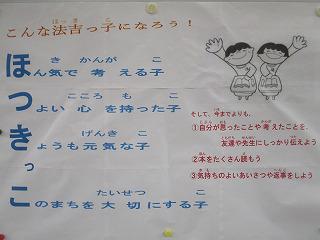 こんな法吉っ子になろう！
ほん気で 考える子
つよい 心 を持った子
きょうも元気な子
っ
このまちを大切にする子
そして、今までよりも、
①自分が思ったことや考えたことを、
友達や先生にしっかり伝えよう
②本をたくさん読もう
③気持ちのよいあいさつや返事をしよう